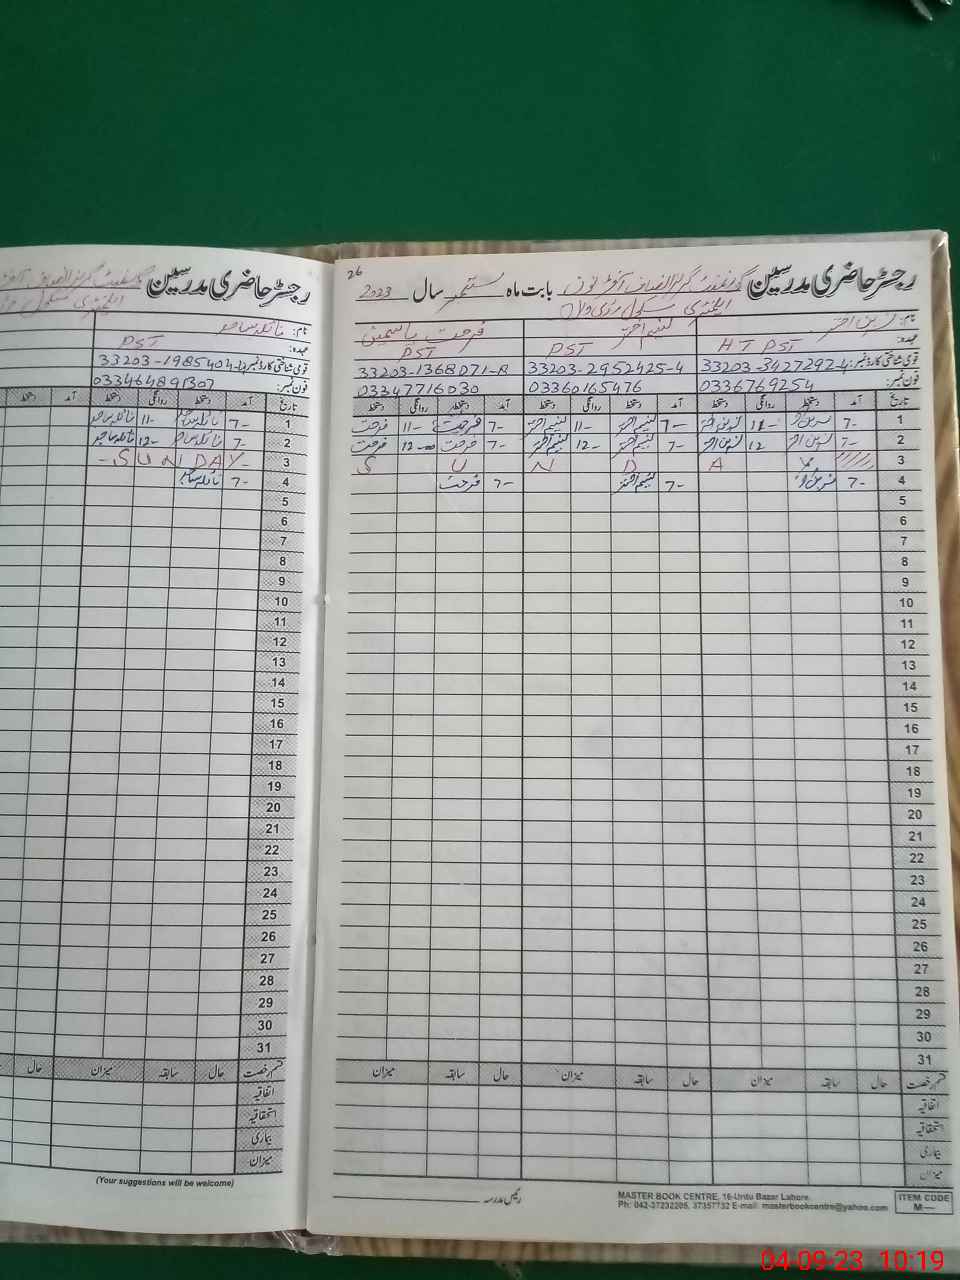 رجسٹر حاضری مدرسین گورنمنٹ گرلز بابت ماہ ستمبر سال 2023
26
ایلیمنٹری سکول
نام: نسرین اختر نسیم اختر فرحت یاسمین
عہدہ: HT PST PST PST
قومی شناختی کارڈ نمبر: 33203-3427292-4 33203-2952425-4 33203-1368071-8
فون نمبر: 0336769254 03360165476 03347716030
تاریخ آمد دستخط روانگی دستخط آمد دستخط روانگی دستخط آمد دستخط روانگی دستخط
1 7- نسرین اختر 11- نسرین اختر 7- نسیم اختر 11- نسیم اختر 7- فرحت 11- فرحت
2 7- نسرین اختر 12 نسرین اختر 7- نسیم اختر 12- نسیم اختر 7- فرحت 12-00 فرحت
3 S U N D A Y
4 7- نسرین اختر 7- نسیم اختر 7- فرحت
5
6
7
8
9
10
11
12
13
14
15
16
17
18
19
20
21
22
23
24
25
26
27
28
29
30
31
قسم رخصت حال سابقہ میزان حال سابقہ میزان حال سابقہ میزان
اتفاقیہ
استحقاقیہ
بیماری
میزان
رئیس مدرسہ
MASTER BOOK CENTRE, 16-Urdu Bazar Lahore.
Ph: 042-37232205, 37357732 E-mail: masterbookcentre@yahoo.com
ITEM CODE
M—
رجسٹر حاضری مدرسین
ایلیمنٹری سکول
نام:
عہدہ: PST
قومی شناختی کارڈ نمبر: 33203-1985404-4
فون نمبر: 033464891307
تاریخ آمد دستخط روانگی دستخط آمد دستخط
1 7- 11-
2 7- 12-
3 - S U N D A Y -
4 7-
5
6
7
8
9
10
11
12
13
14
15
16
17
18
19
20
21
22
23
24
25
26
27
28
29
30
31
قسم رخصت حال سابقہ میزان حال
اتفاقیہ
استحقاقیہ
بیماری
میزان
(Your suggestions will be welcome)
04-09-23 10:19